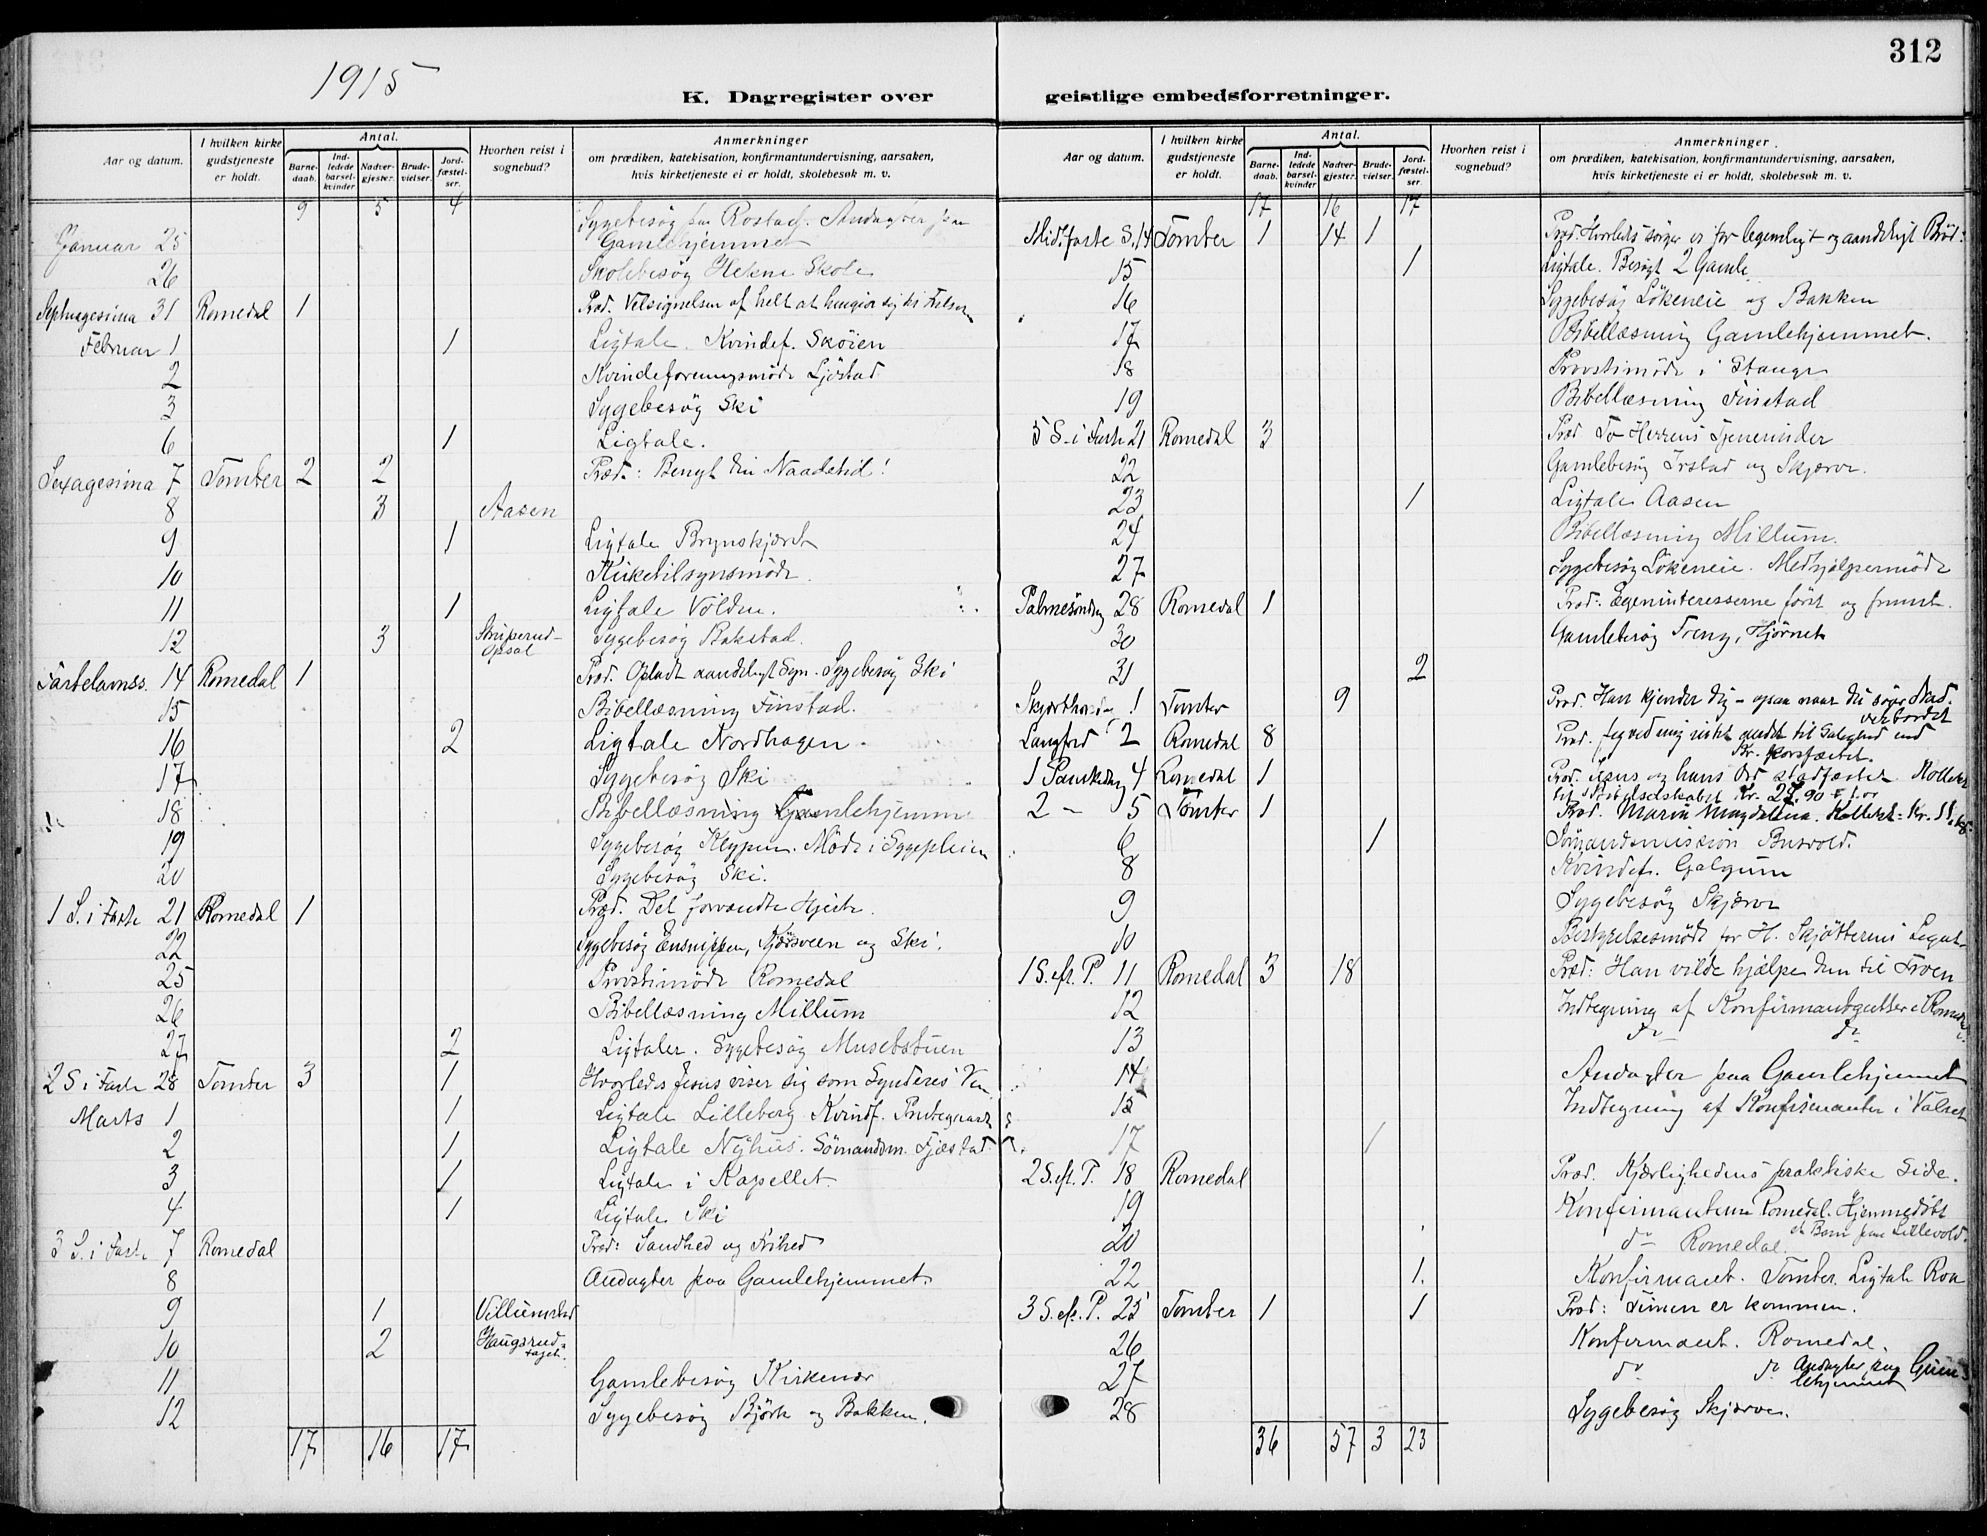 312
1915
K. Dagregister over geistlige embedsforretninger.
Aar og datum.
I hvilken kirke gudstjeneste er holdt.
Antal.
Barnedaab.
Indledede barselkvinder
Nadvergjester.
Brudevielser.
Jordfæstelser.
Hvorhen reist i sognebud?
Anmerkninger
om prædiken, katekisation, konfirmantundervisning, aarsaken,
hvis kirketjeneste ei er holdt, skolebesøk m. v.
9 5 4
Januar 25 Sygebesøg paa Rostad. Andagter paa
Gamlehjemmet
26 Skolebesøg Helene Skole
Septuagesima 31 Romedal 1 Præd. Velsignelsen af helt at hengive sig til Frelseren
Februar 1 1 Ligtale. Kvindef. Skøien
2 Kvindeforeningsmøde Ljøstad
3 Sygebesøg Ski
6 1 Ligtale.
Sexagesima 7 Tomter 2 2 Præd.: Benyt din Naadetid!
8 3 Aasen
9 1 Ligtale Brynskjæret
10 Kirketilsynsmøde.
11 1 Ligtale Volden.
12 3 Struperud- Opsal Sygebesøg Bakstad.
Fastelavnss. 14 Romedal 1 Præd. Opladt aandeligt Syn. Sygebesøg Ski
15 Bibellæsning Finstad.
16 2 Ligtale Nordhagen.
17 Sygebesøg Ski
18 Bibellæsning Gamlehjemme
19 Sygebesøg Klypen. Møde i Sygepleien
20 Sygebesøg Ski.
1 S. i Faste 21 Romedal 1 Præd. Det forvandte Hjerte.
22 Sygebesøg Ensnippen, Kjørsveen og Ski.
25 Provstimøde Romedal
26 Bibellæsning Millum
27 2 Ligtaler. Sygebesøg Musebstuen
2 S i Faste 28 Tomter 3 1 Hvorledes Jesus viser sig som Synderes Ven
Marts 1 1 Ligtale Lilleberg Kvindf.
2 1 Ligtale Nyhus. Sømandsm. Fjæstad
3 1 Ligtale i Kapellet.
4 1 Ligtale Ski
3 S. i Faste 7 Romedal Præd: Sandhed og Frihed
8 Andagter paa Gamlehjemmet.
9 1 Villumstad
10 2 Haugsrud- taget.
11 Gamlebesøg Kirkenær
12 Sygebesøg Bjørk og Bakken.
17 16 17
Aar og datum.
I hvilken kirke gudstjeneste er holdt.
Antal.
Barnedaab.
Indledede barselkvinder
Nadvergjester.
Brudevielser.
Jordfæstelser.
Hvorhen reist i sognebud?
Anmerkninger.
om prædiken, katekisation, konfirmantundervisning, aarsaken,
hvis kirketjeneste ei er holdt, skolebesøk m. v.
17 16 17
Midfaste S. 14 Tomter 1 14 1 Præd. Hvorledes sørger vi for legemligt og aandeligt Brød:
15 1 Ligtale. Besøgt 2 Gamle
16 Sygebesøg Løkeneie og Bakken
17 Bibellæsning Gamlehjemmet.
18 Provstimøde i Stange
19 Bibellæsning Finstad
5 S. i Faste 21 Romedal 3 Præd To Herrens Tjenerinder
22 Gamlebesøg Irstad og Skjærve.
23 1 Ligtale Aasen
24 Bibellæsning Millum.
27 Sygebesøg Løkeneie. Medhjælpermøde
Palmesøndag 28 Romedal 1 Præd: Egeninteresserne først og fremst.
30 Gamlebesøg Treng, Hjørnet
31 2
Skjærthorsdag 1 Tomter 9 Præd. Han kjender dig – ogsaa naar du søger Nadverbordet
Langfred 2 Romedal 8 Præd. Jeg ved mig intet andet til Salighed end
Kr. korsfæstet.
1 Paaskedag 4 Romedal 1 Præd. Jesus og hans Ord stadfæstet. Kollekt
til Bibelselskabet Kr. 27.90
2 – 5 Tomter 1 Præd. Maria Magdalena. Kollekt: Kr. 11.
6 1 Sømandsmission Busvold.
8 Kvindef. Galgum
9 Sygebesøg Skjærve
10 Bestyrelsesmøde for H. Skjøtterens Legat
1 S. eft. P. 11 Romedal 3 18 Præd: Han vilde hjælpe dem til Troen
12 Indtegning af Konfirmantgutter i Romedal
13 do do
14 Andagter paa Gamlehjemmet
15 Indtegning af Konfirmanter i Valset
17 1
2 S. eft. P. 18 Romedal Præd. Kjærlighedens praktiske Side.
19 Konfirmanterne Romedal. Hjemmedøbt
et Barn paa Lillevold.
20 do Romedal.
22 1. Konfirmant. Tomter. Ligtale Roa
3 S. eft. P. 25 Tomter 1 1 Præd: Timen er kommen.
26 Konfirmant. Romedal.
27 do do Andagter paa Gamlehjemmet
28 Sygebesøg Skjærve.
36 57 3 23